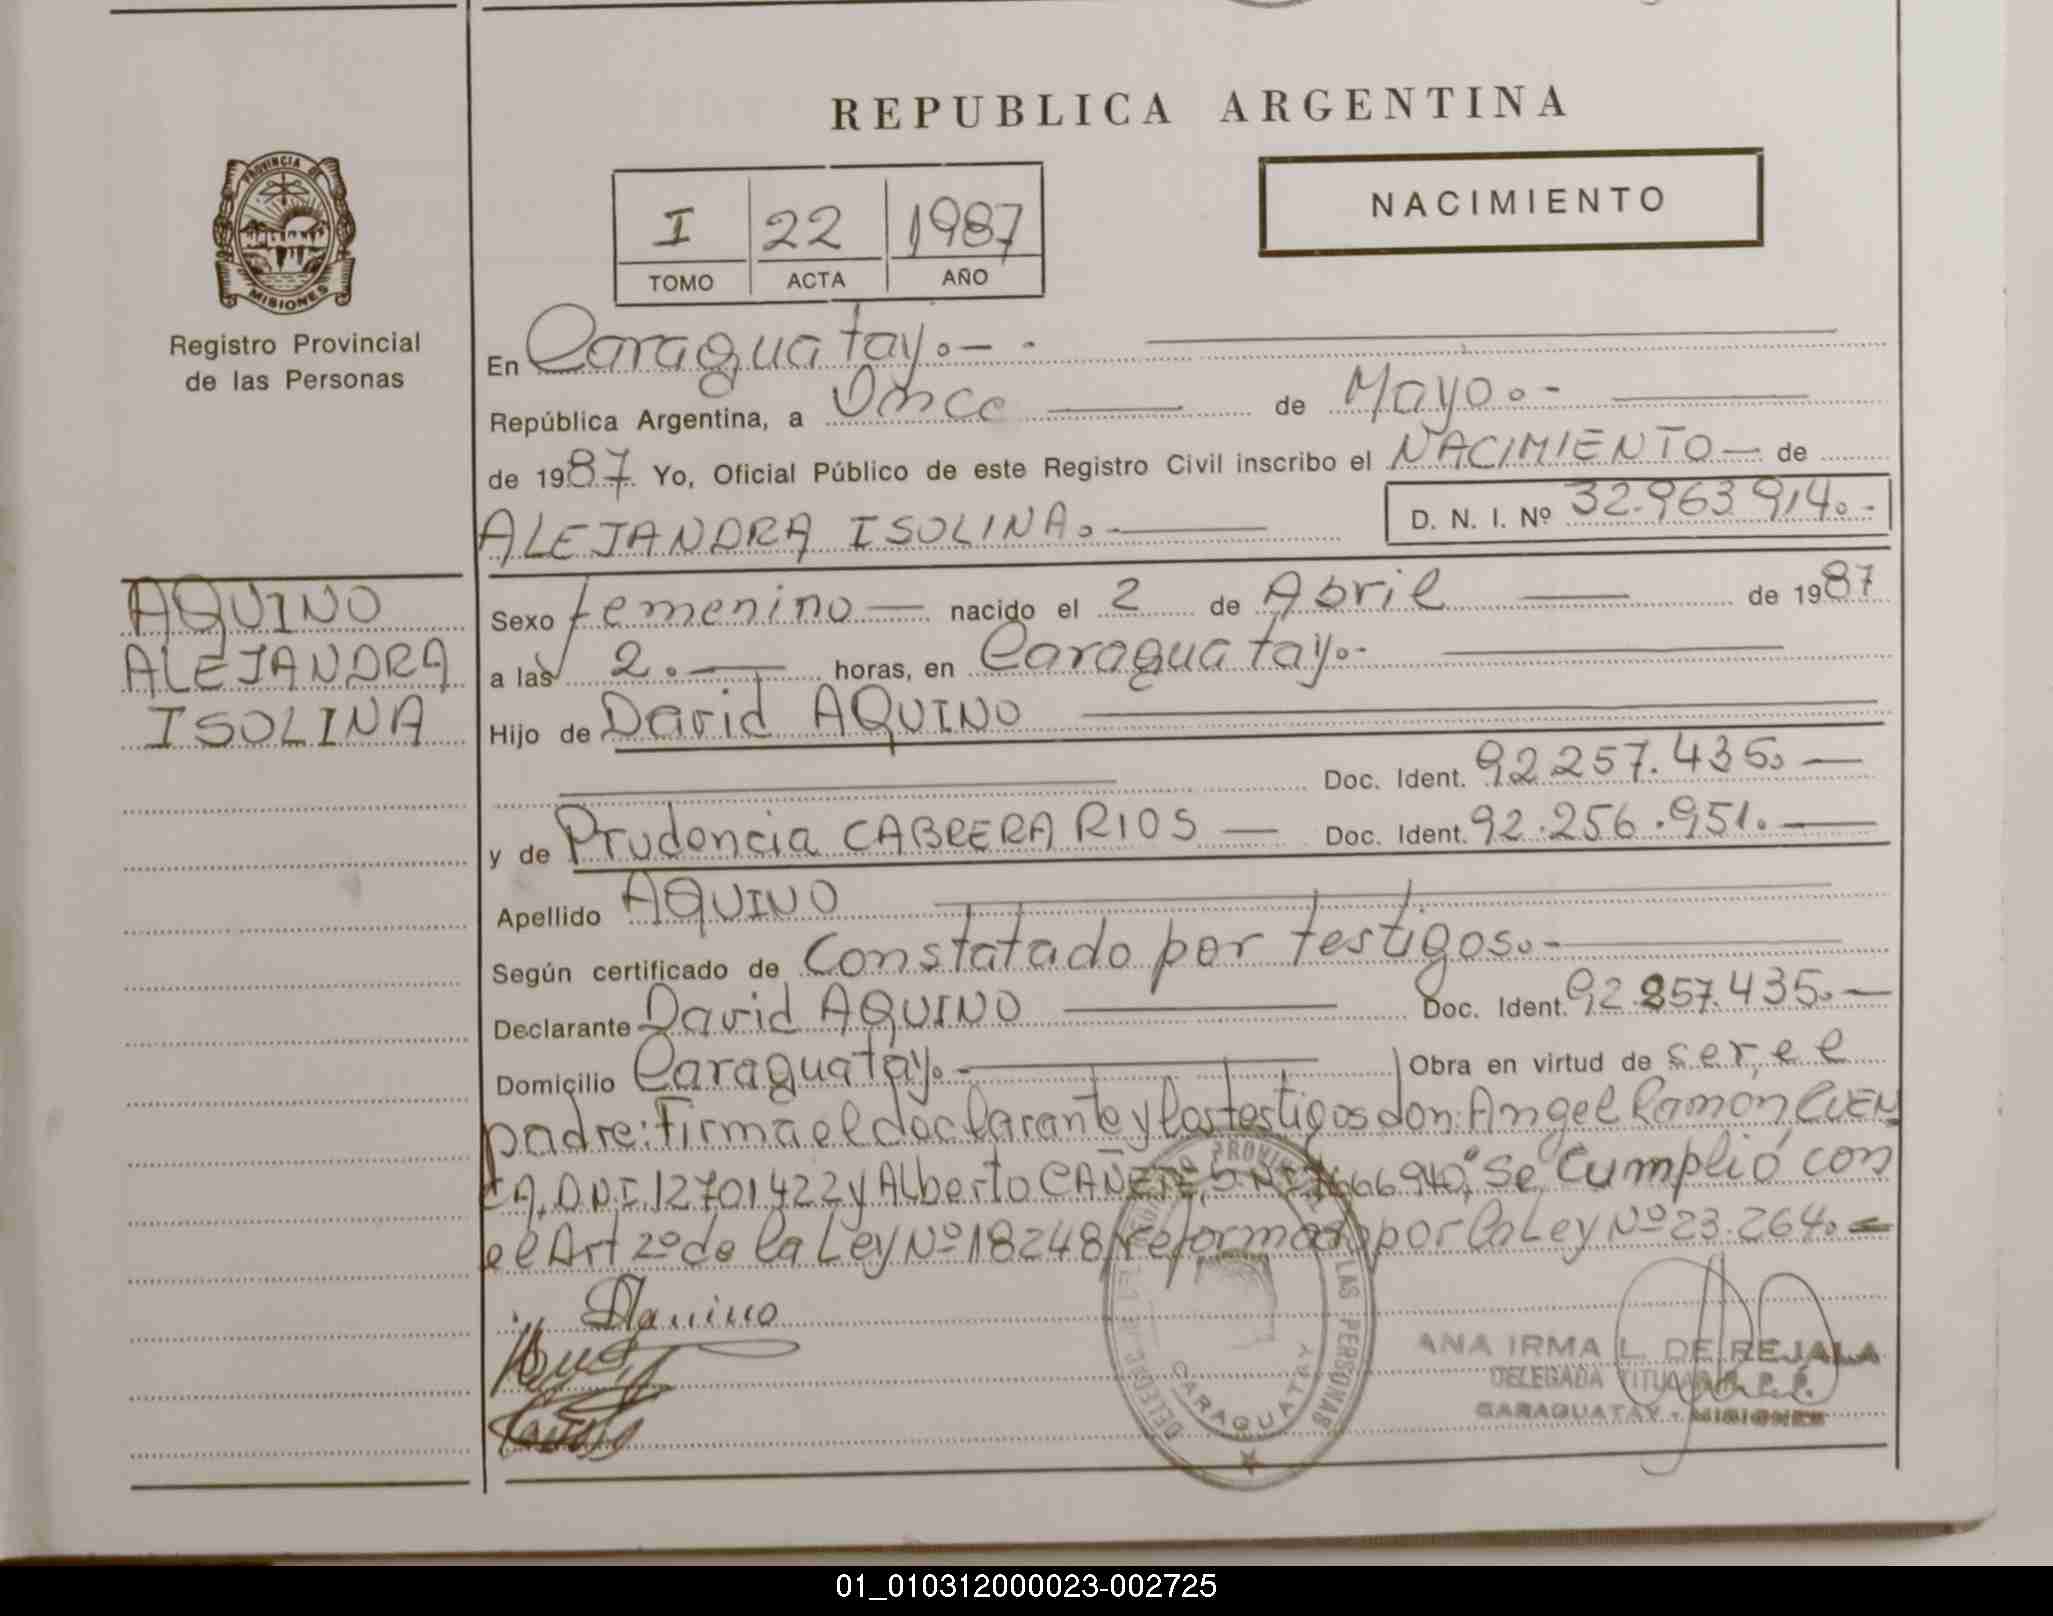 REPUBLICA ARGENTINA
PROVINCIA DE
MISIONES
Registro Provincial
de las Personas
I 22 1987
TOMO ACTA AÑO
NACIMIENTO
En Caraguatay.- -
República Argentina, a Once de Mayo.-
de 1987 Yo, Oficial Público de este Registro Civil inscribo el NACIMIENTO - de
ALEJANDRA ISOLINA.- D. N. I. Nº 32.963 914.-
AQUINO
ALEJANDRA
ISOLINA
Sexo femenino - nacido el 2 de Abril de 1987
a las 2.- horas, en Caraguatay.-
Hijo de David AQUINO
Doc. Ident. 92 257.435.-
y de Prudencia CABRERA RIOS - Doc. Ident. 92.256.951.-
Apellido AQUINO
Según certificado de Constatado por testigos.-
Declarante David AQUINO Doc. Ident. 92.257.435.-
Domicilio Caraguatay.- Obra en virtud de ser, e e
padre: Firma el declarante y los testigos don: Angel Ramon CUEN
CA, D.N.I. 12701422 y Alberto CAÑETE, Se Cumplió con
el Art 2º de la Ley Nº 18248, reformado por la Ley Nº 23.264.-
ANA IRMA L. DE REJALA
DELEGADA TITULAR R. P. P.
CARAGUATAY - MISIONES
LAS PERSONAS
CARAGUATAY
01_010312000023-002725